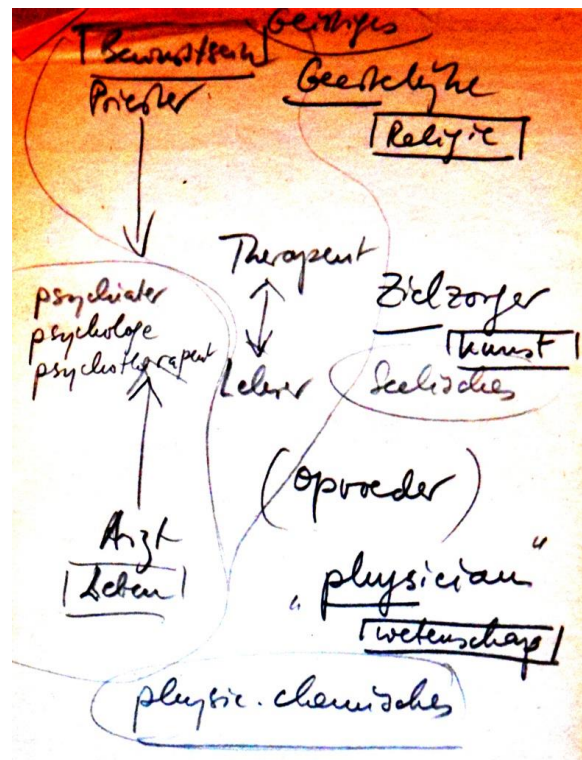 Geistiges
Bewusstsein
Priester
Geestelijke
Religie
Therapeut
psychiater
psychologe
psychotherapeut
Zielzorger
kunst
Lehrer
Seelisches
(opvoeder)
Arzt
Leben
"physician"
wetenschap
physic. chemisches